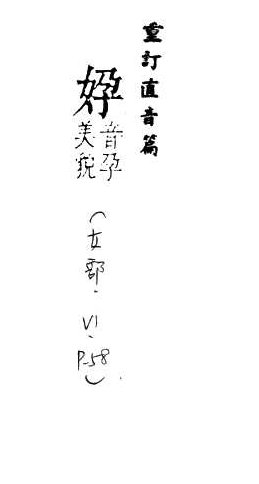 重訂直音篇
㛺
音孕
美貌
(女部. VI. P.58)